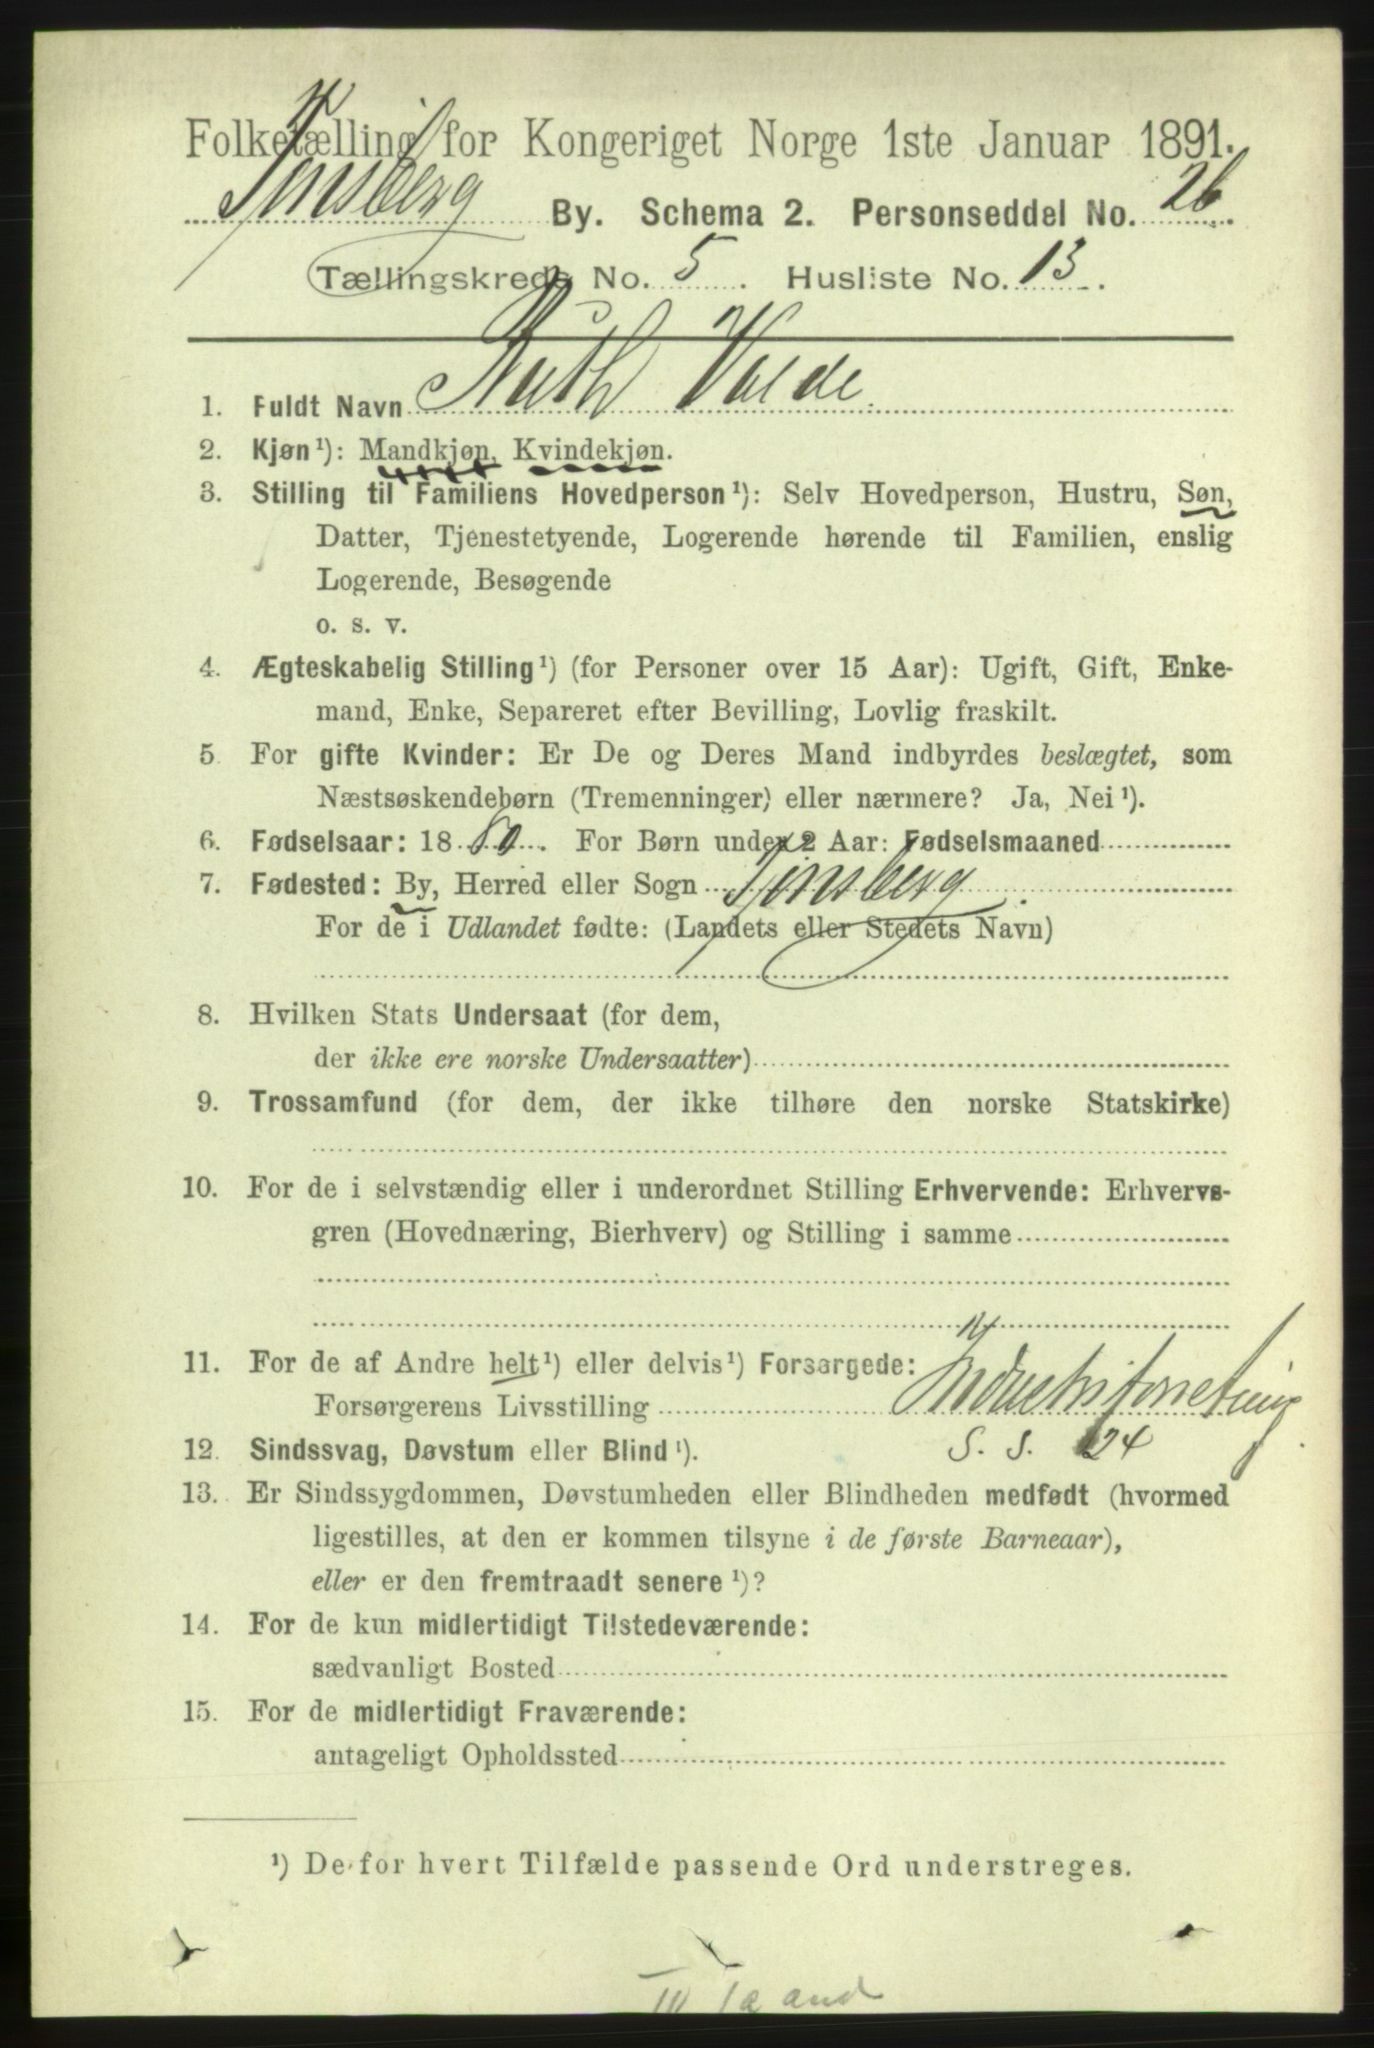 Folketælling for Kongeriget Norge 1ste Januar 1891.
Tønsberg By. Schema 2. Personseddel No. 26
Tællingskreds No. 5. Husliste No. 13.
1. Fuldt Navn Ruth Volde.
2. Kjøn¹): Mandkjøn, Kvindekjøn.
3. Stilling til Familiens Hovedperson¹): Selv Hovedperson, Hustru, Søn,
Datter, Tjenestetyende, Logerende hørende til Familien, enslig
Logerende, Besøgende
o. s. v.
4. Ægteskabelig Stilling¹) (for Personer over 15 Aar): Ugift, Gift, Enke-
mand, Enke, Separeret efter Bevilling, Lovlig fraskilt.
5. For gifte Kvinder: Er De og Deres Mand indbyrdes beslægtet, som
Næstsøskendebørn (Tremenninger) eller nærmere? Ja, Nei¹).
6. Fødselsaar: 1880. For Børn under 2 Aar: Fødselsmaaned
7. Fødested: By, Herred eller Sogn Tønsberg.
For de i Udlandet fødte: (Landets eller Stedets Navn)
8. Hvilken Stats Undersaat (for dem,
der ikke ere norske Undersaatter)
9. Trossamfund (for dem, der ikke tilhøre den norske Statskirke)
10. For de i selvstændig eller i underordnet Stilling Erhvervende: Erhvervs-
gren (Hovednæring, Bierhverv) og Stilling i samme
11. For de af Andre helt¹) eller delvis¹) Forsørgede:
Forsørgerens Livsstilling Industriforretning
12. Sindssvag, Døvstum eller Blind¹). S. S. 24
13. Er Sindssygdommen, Døvstumheden eller Blindheden medfødt (hvormed
ligestilles, at den er kommen tilsyne i de første Barneaar),
eller er den fremtraadt senere¹)?
14. For de kun midlertidigt Tilstedeværende:
sædvanligt Bosted
15. For de midlertidigt Fraværende:
antageligt Opholdssted
¹) De for hvert Tilfælde passende Ord understreges.